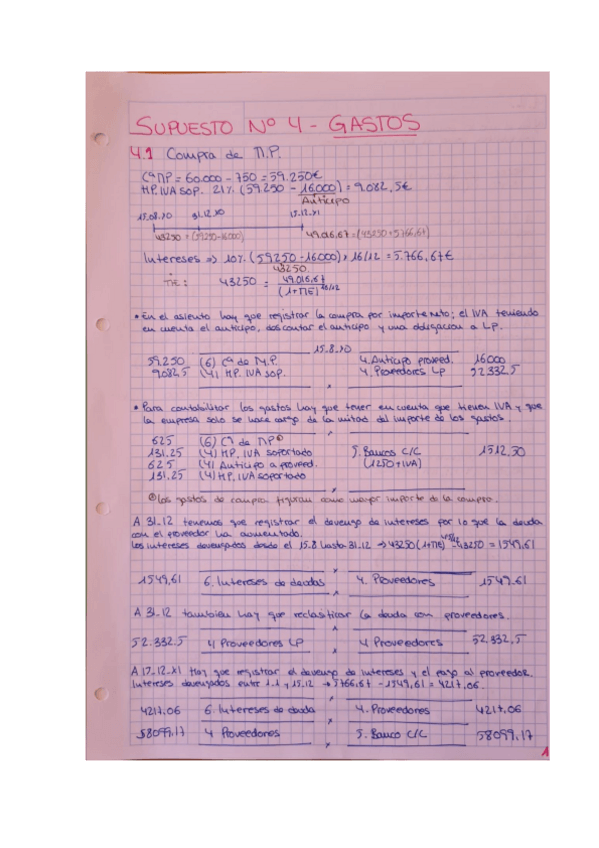 SUPUESTO Nº 4 - GASTOS
4.1 Compra de M.P.
Cª MP = 60.000 - 750 = 59.250€
HP. IVA SOP. 21% (59.250 - 16.000) = 9.082,5€
Anticipo
15.08.X0 31.12.X0 15.12.X1
43250 = (59250-16000) 49.016,67 = (43250+5766,67)
Intereses => 10% (59250-16000) x 16/12 = 5.766,67€
43250
TIE: 43250 = 49.016,67 / (1+TIE)^16/12
• En el asiento hay que registrar la compra por importe neto; el IVA teniendo
en cuenta el anticipo, descontar el anticipo y una obligacion a LP.
15.8.X0
59.250 (6) Cª de M.P. 4. Anticipo proveed. 16000
9.082.5 (4) HP. IVA sop. 4. Proveedores LP 52.332.5
x
• Para contabilizar los gastos hay que tener en cuenta que tienen IVA y que
la empresa solo se hace cargo de la mitad del importe de los gastos.
x
625 (6) Cª de MP①
131.25 (4) HP. IVA soportado 5. Banco C/C 1512.50
625 (4) Anticipo a proveed. (1250+IVA)
131.25 (4) HP. IVA soportado
x
① Los gastos de compra figuran como mayor importe de la compra.
A 31.12 tenemos que registrar el devengo de intereses por lo que la deuda
con el proveedor ha aumentado.
Los intereses devengados desde el 15.8 hasta 31.12 → 43250 (1+TIE) - 43250 = 1549,61
x
1549,61 6. Intereses de deudas 4. Proveedores 1549.61
x
A 31.12 tambien hay que reclasificar la deuda con proveedores.
x
52.332.5 4 Proveedores LP 4 Proveedores 52.332,5
x
A 17-12-X1 Hay que registrar el devengo de intereses y el pago al proveedor.
Intereses devengados entre 1.1 y 15.12 → 5766.67 - 1549,61 = 4217,06.
x
4217,06 6. Intereses de deuda 4. Proveedores 4217,06
x
58099,17 4 Proveedores 5. Banco C/C 58099,17
x
1